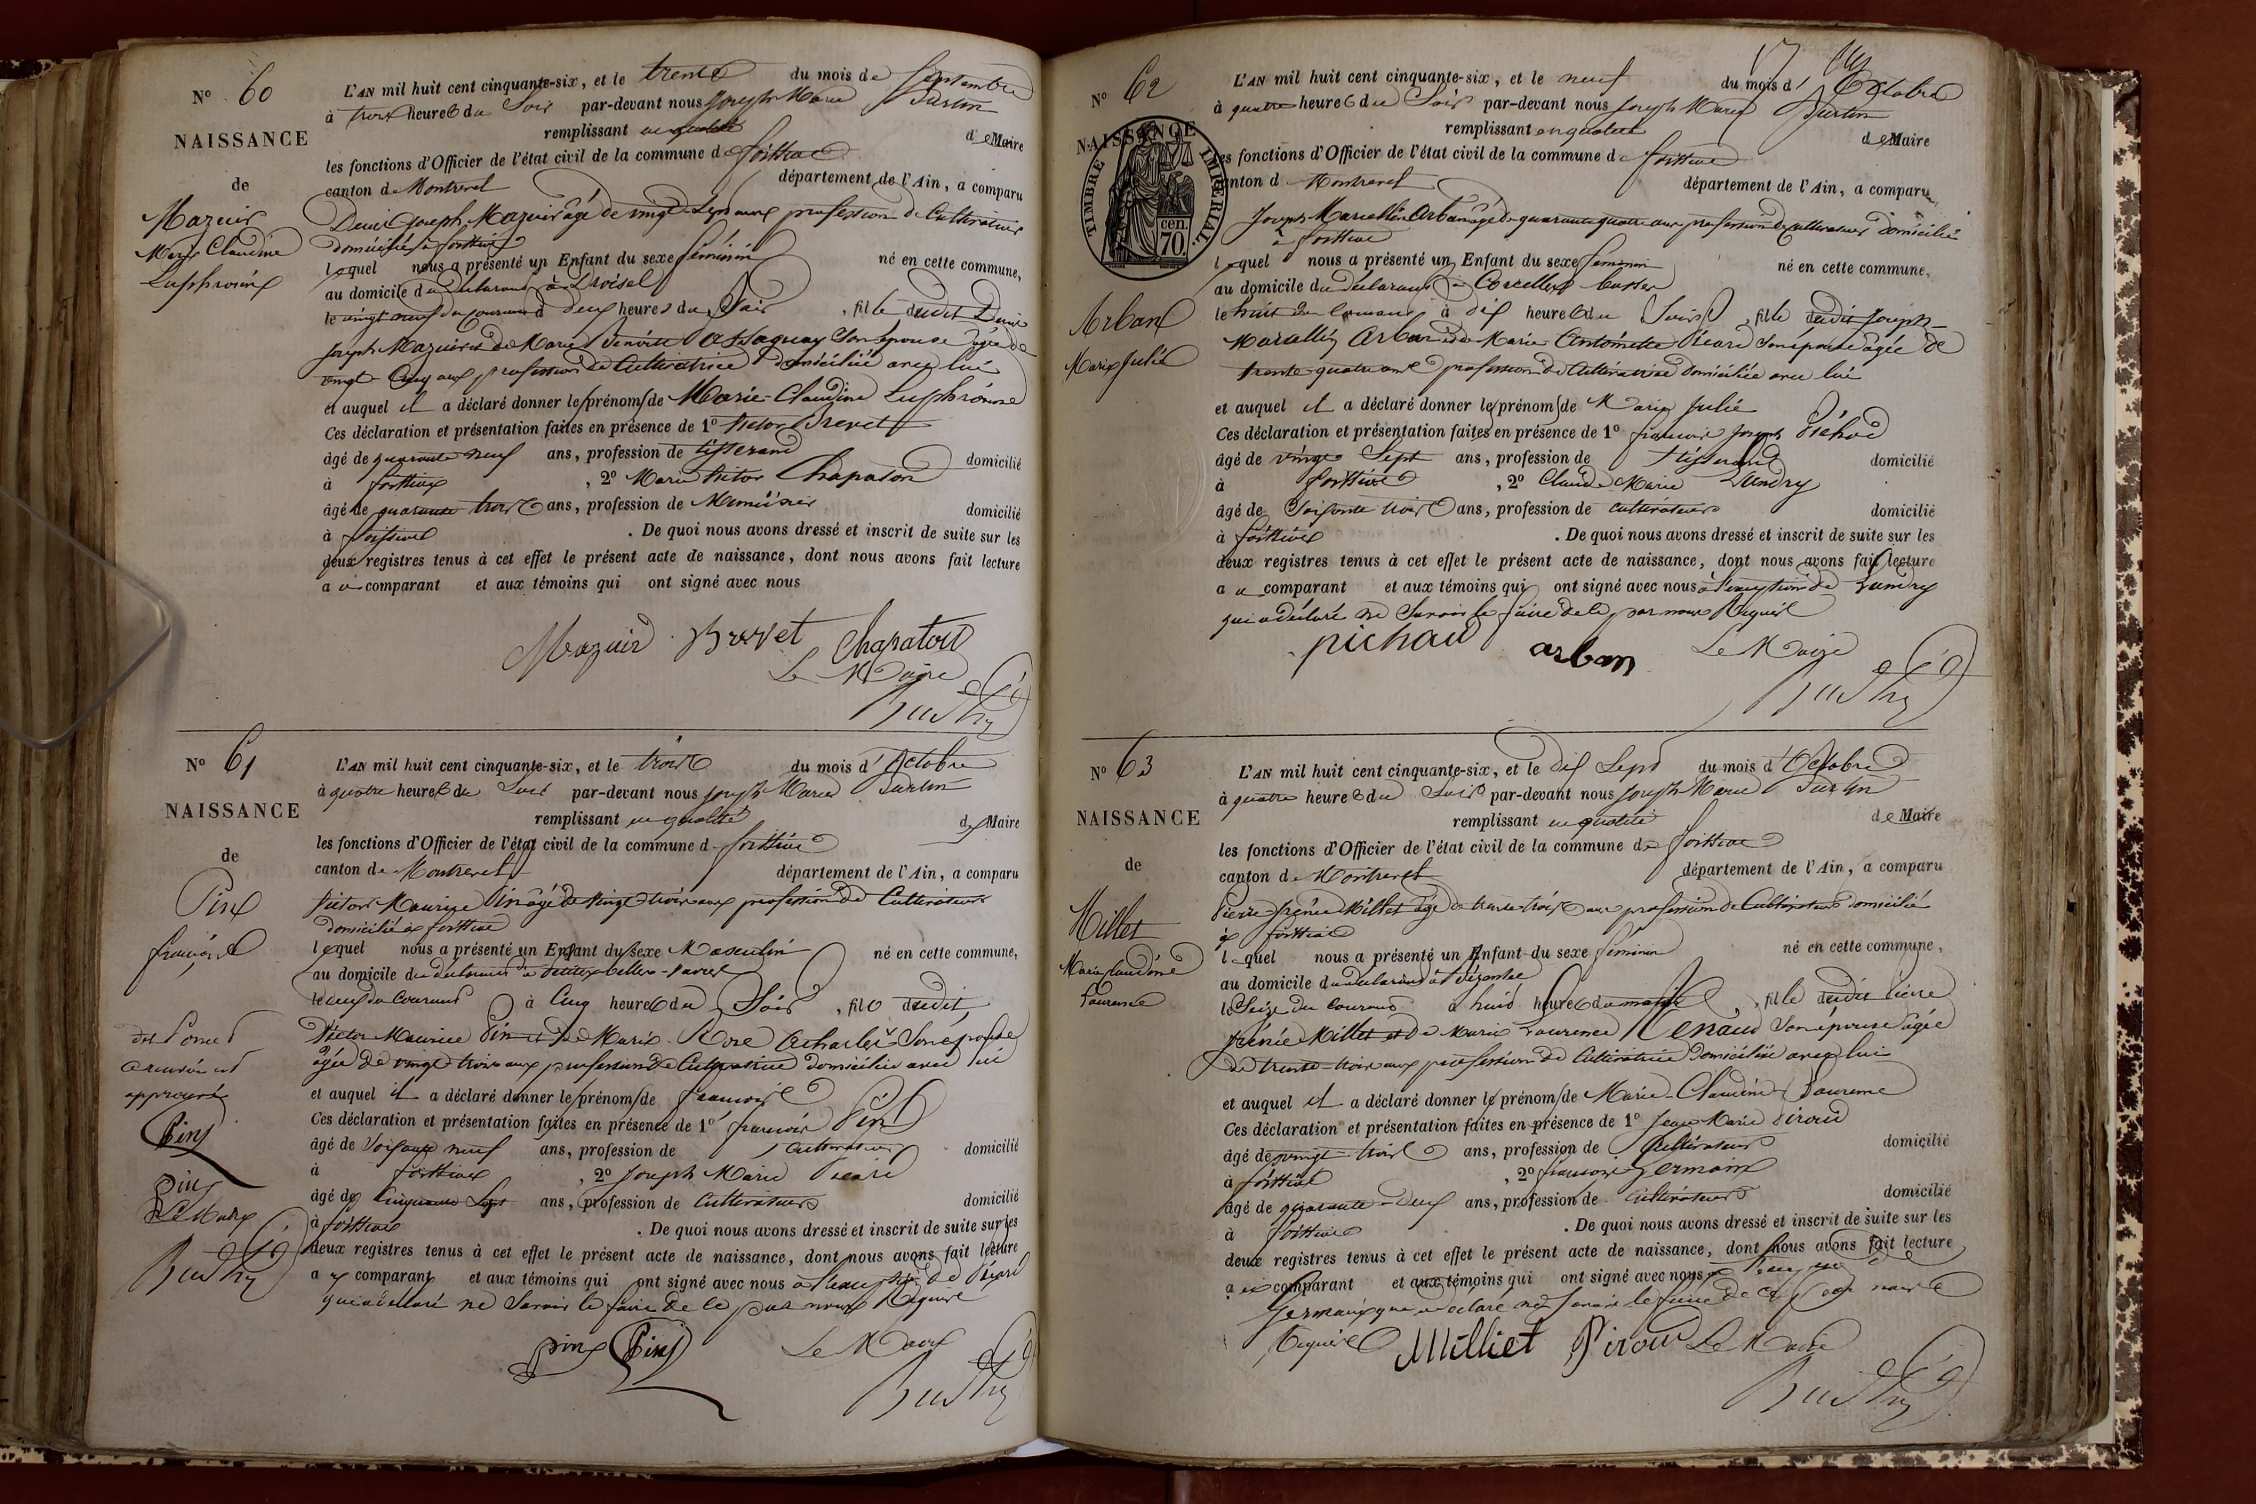 N° 60
NAISSANCE
de
Mazuir
Marie Claudine
Euphrosine
L'AN mil huit cent cinquante-six, et le trente du mois de Septembre
à trois heures du Soir par-devant nous Joseph Marie
remplissant en qualité de Maire
les fonctions d'Officier de l'état civil de la commune de foissiat
canton de Montrevel département de l'Ain, a comparu
Denis Joseph Mazuir âgé de vingt Sept ans profession de Cultivateur
domicilié à foissiat
lequel nous a présenté un Enfant du sexe féminin né en cette commune,
au domicile du declarant à
le vingt neuf du courant à deux heures du Soir, fille dudit Denis
Joseph Mazuir et de Marie son épouse âgée de
vingt-Cinq ans profession de Cultivatrice domiciliée avec lui
et auquel il a déclaré donner les prénoms de Marie-Claudine Euphrosine
Ces déclaration et présentation faites en présence de 1° Victor Brevet
âgé de quarante neuf ans, profession de tisserand domicilié
à foissiat, 2° Marie Victor Chapaton
âgé de quarante trois ans, profession de Menuisier domicilié
à foissiat. De quoi nous avons dressé et inscrit de suite sur les
deux registres tenus à cet effet le présent acte de naissance, dont nous avons fait lecture
au comparant et aux témoins qui ont signé avec nous
Mazuir Brevet Chapaton
Le Maire
N° 61
NAISSANCE
de
Pin
françois
approuvé
Pin
Pin
Le Maire
L'AN mil huit cent cinquante-six, et le trois du mois d'Octobre
à quatre heures du Soir par-devant nous Joseph Marie
remplissant en qualité de Maire
les fonctions d'Officier de l'état civil de la commune de foissiat
canton de Montrevel département de l'Ain, a comparu
Victor Maurice Pin âgé de vingt-trois ans profession de Cultivateur
domicilié à foissiat
lequel nous a présenté un Enfant du sexe Masculin né en cette commune,
au domicile du declarant à
le deux du Courant à Cinq heures du Soir, fils dudit
Victor Maurice Pin et de Marie Rose son épouse
âgée de vingt-trois ans profession de Cultivatrice domiciliée avec lui
et auquel il a déclaré donner le prénom de françois
Ces déclaration et présentation faites en présence de 1° françois Pin
âgé de Soixante neuf ans, profession de Cultivateur domicilié
à foissiat, 2° Joseph Marie Picard
âgé de Cinquante Sept ans, profession de Cultivateur domicilié
à foissiat. De quoi nous avons dressé et inscrit de suite sur les
deux registres tenus à cet effet le présent acte de naissance, dont nous avons fait lecture
au comparant et aux témoins qui ont signé avec nous à l'exception de Picard
qui a déclaré ne Savoir le faire de ce par nous Requis
Pin Pin Le Maire
N° 62
NAISSANCE
TIMBRE IMPERIAL
70 cen.
Arban
Marie Julie
L'AN mil huit cent cinquante-six, et le neuf du mois d'Octobre
à quatre heures du Soir par-devant nous Joseph Marie
remplissant en qualité de Maire
les fonctions d'Officier de l'état civil de la commune de foissiat
canton de Montrevel département de l'Ain, a comparu
Joseph Marcellin Arban âgé de quarante quatre ans profession de cultivateur domicilié
à foissiat
lequel nous a présenté un Enfant du sexe féminin né en cette commune,
au domicile du declarant à
le huit du Courant à dix heures du Soir, fille dudit Joseph
Marcellin Arban et de Marie Antoinette Picard Son épouse âgée de
trente-quatre ans profession de Cultivatrice domiciliée avec lui
et auquel il a déclaré donner les prénoms de Marie Julie
Ces déclaration et présentation faites en présence de 1° françois Joseph Pichod
âgé de vingt Sept ans, profession de tisserand domicilié
à foissiat, 2° Claude Marie Landry
âgé de Soixante trois ans, profession de Cultivateur domicilié
à foissiat. De quoi nous avons dressé et inscrit de suite sur les
deux registres tenus à cet effet le présent acte de naissance, dont nous avons fait lecture
au comparant et aux témoins qui ont signé avec nous à l'exception de Landry
qui a déclaré ne Savoir le faire de ce par nous Requis
pichau arban Le Maire
N° 63
NAISSANCE
de
Millet
Marie Claudine
Laurence
L'AN mil huit cent cinquante-six, et le dix Sept du mois d'Octobre
à quatre heures du Soir par-devant nous Joseph Marie
remplissant en qualité de Maire
les fonctions d'Officier de l'état civil de la commune de foissiat
canton de Montrevel département de l'Ain, a comparu
Pierre Irénée Millet âgé de trente-trois ans profession de Cultivateur domicilié
à foissiat
lequel nous a présenté un Enfant du sexe féminin né en cette commune,
au domicile du declarant à
le Seize du Courant à huit heures du matin, fille dudit Pierre
Irénée Millet et de Marie Laurence Renaud Son épouse âgée
de trente-trois ans profession de Cultivatrice domiciliée avec lui
et auquel il a déclaré donner les prénoms de Marie-Claudine Laurence
Ces déclaration et présentation faites en présence de 1° Jean Marie Piroud
âgé de vingt-trois ans, profession de Cultivateur domicilié
à foissiat, 2° françois Germain
âgé de quarante-deux ans, profession de Cultivateur domicilié
à foissiat. De quoi nous avons dressé et inscrit de suite sur les
deux registres tenus à cet effet le présent acte de naissance, dont nous avons fait lecture
au comparant et aux témoins qui ont signé avec nous à l'exception de
Germain qui a déclaré ne Savoir le faire de ce par nous
Requis Milliet Piroud Le Maire